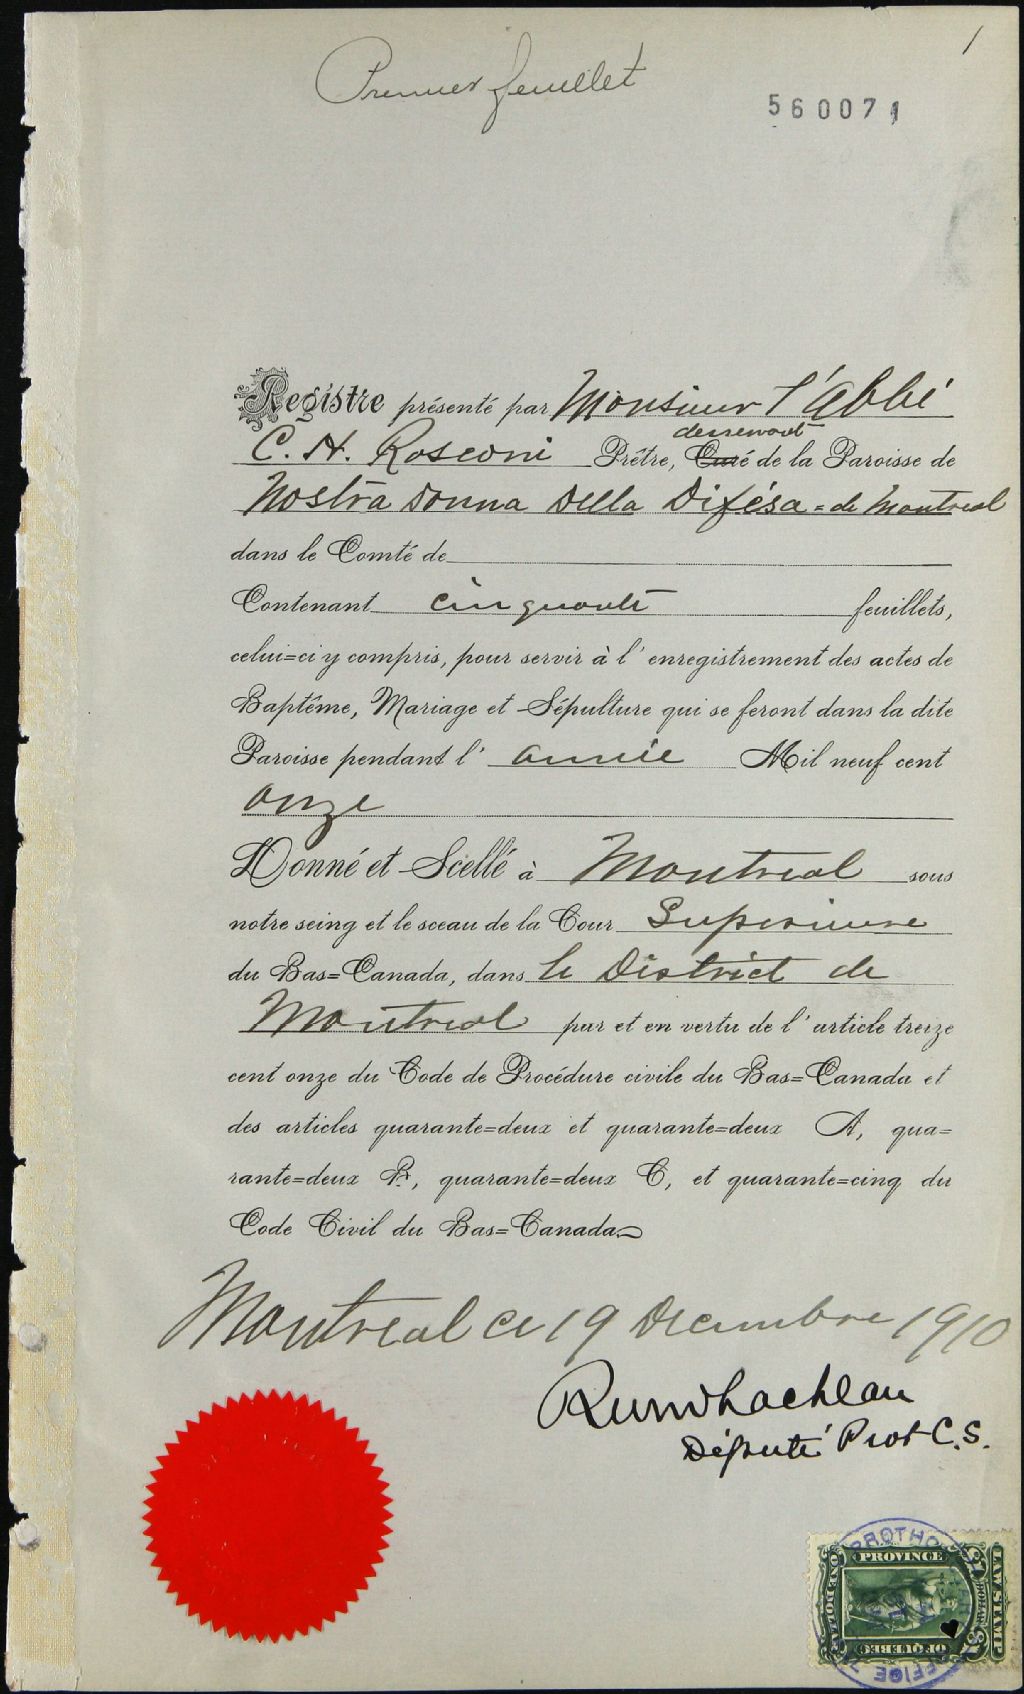 1
Premier feuillet
560071
Registre présenté par Monsieur l'Abbé
desservant
C. H. Rosconi Prêtre, Curé de la Paroisse de
Nostra Donna Della Difésa = de Montreal
dans le Comté de
Contenant cinquante feuillets,
celui=ci y compris, pour servir à l'enregistrement des actes de
Baptême, Mariage et Sépulture qui se feront dans la dite
Paroisse pendant l' année Mil neuf cent
onze
Donné et Scellé à Montreal sous
notre seing et le sceau de la Cour Superieure
du Bas=Canada, dans le District de
Montreal par et en vertu de l'article treize
cent onze du Code de Procédure civile du Bas=Canada et
des articles quarante=deux et quarante=deux A, qua=
rante=deux B, quarante=deux C, et quarante=cinq du
Code Civil du Bas=Canada
Montreal ce 19 Decembre 1910
Député Prot C.S.
PROTHO
PROVINCE
OF QUEBEC
ONE DOLLAR
LAW STAMP
OFFICE